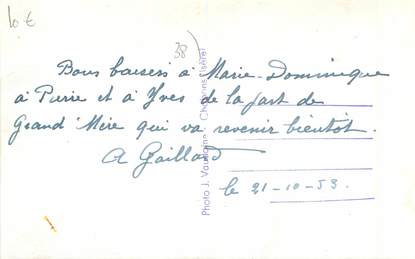 10 €
38)
Bons baisers à Marie-Dominique
à Pierre et à Yves de la part de
Grand'Mère qui va revenir bientôt.
A Gaillard
le 21-10-53.
Photo J. Chatonnay (Isère)